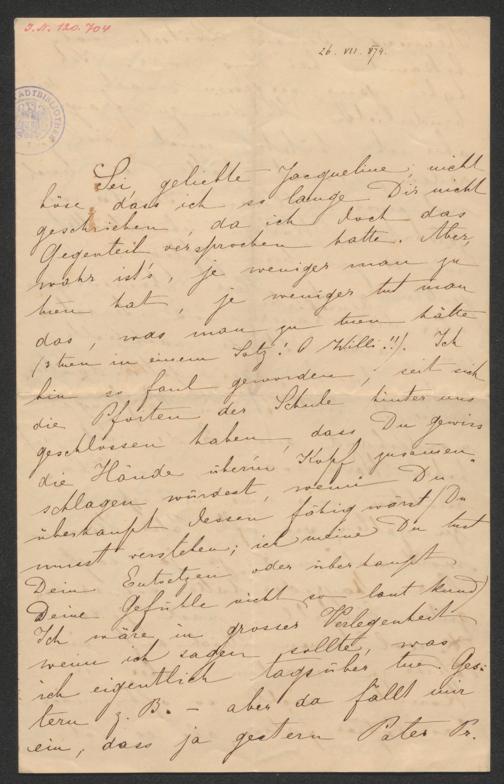 J. N. 120.704
26. VII. 879.
STADTBIBLIOTHEK
Sei, geliebte Jacqueline, nicht
böse, dass ich so lange Dir nicht
geschrieben, da ich doch das
Gegenteil versprochen hatte. Aber,
wahr ist's, je weniger man zu
tuen hat, je weniger tut man
das, was man zu tuen hätte
(3 tuen in einem Satz! O Willi!!). Ich
bin so faul geworden, seit sich
die Pforten der Schule hinter uns
geschlossen haben, dass Du gewiss
die Hände über'm Kopf zusamen-
schlagen würdest, wenn Du
überhaupt dessen fähig wärst (Du
musst verstehen; ich meine Du tust
Dein Entsetzen oder überhaupt
Deine Gefühle nicht so laut kund)
Ich wäre in grosser Verlegenheit
wenn ich sagen sollte, was
ich eigentlich tagsüber tue. Ges-
tern z. B. – aber da fällt mir
ein, dass ja gestern Pater Pr.